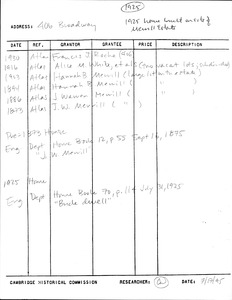 1925
ADDRESS: 406 Broadway
1925 house built on site of
Merrill Estate
DATE REF. GRANTOR GRANTEE PRICE DESCRIPTION
1930 Atlas Francis J. Roche
1916 Atlas Alice M. White, et als (two vacant lots,
1903 Atlas Hannah B. Merrill (large lot
1894 Atlas Hannah B. Merrill ( " )
1886 Atlas J. Warren Merrill ( " )
1873 Atlas J.W. Merrill ( " )
House
Eng Dept House Books 12, p.55 Sept 16, 1875
"J.W. Merrill"
1925 Home
Eng Dept House Books 70, p.114 July 30, 1925
"Brick dwell"
CAMBRIDGE HISTORICAL COMMISSION RESEARCHER: DATE: